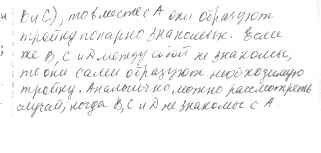 В и С), то вместе с А они образуют
тройку попарно знакомых. Если
же В, С и D между собой не знакомы,
то они сами образуют необходимую
тройку. Аналогично, можно рассмотреть
случай, когда В, С и D не знакомы с А